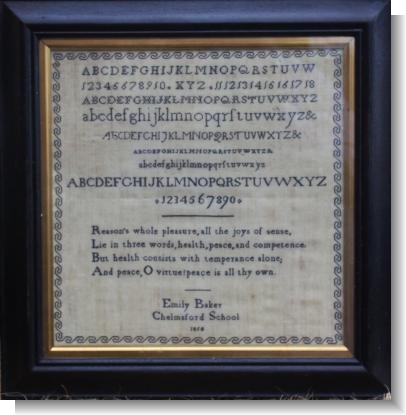 ABCDEFGHIJKLMNOPQRSTUVW
12345678910. XYZ. 1112131415161718
ABCDEFGHIJKLMNOPQRSTUVWXYZ
abcdefghijklmnopqrstuvwxyz&
ABCDEFGHIJKLMNOPQRSTUVWXYZ&
ABCDEFGHIJKLMNOPQRSTUVWXYZ&
abcdefghijklmnopqrstuvwxyz
ABCDEFGHIJKLMNOPQRSTUVWXYZ
.1234567890.
Reason's whole pleasure, all the joys of sense,
Lie in three words, health, peace, and competence.
But health consists with temperance alone;
And peace, O virtue! peace is all thy own.
Emily Baker
Chelmsford School